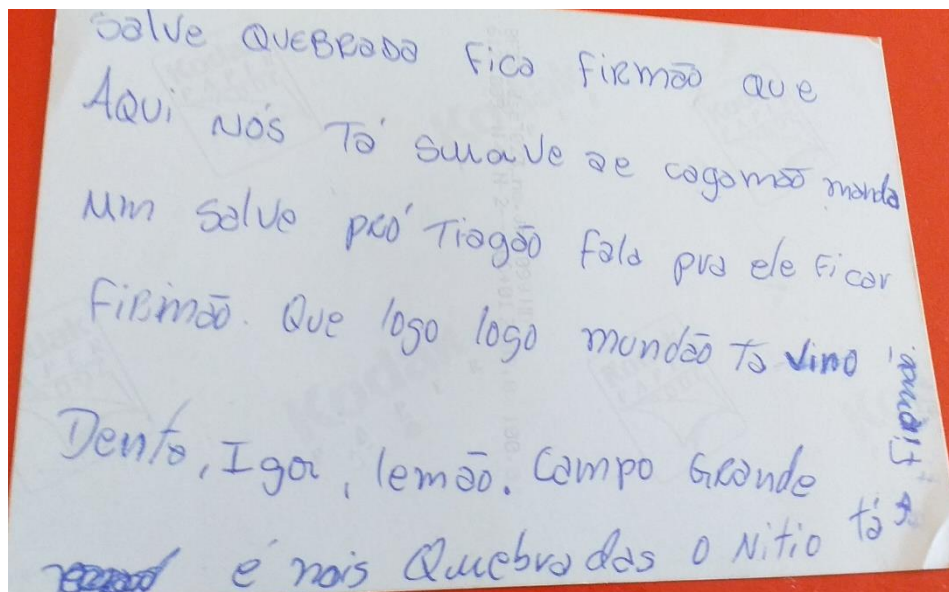 Salve QUEBRADA Fica FIRMÃO QUE
AQUi NÓS Tá SuuaVe ae cagamão manda
um Salve pRó Tiagão Fala pra ele Ficar
FiRmão. Que logo logo mundão Ta vino
Dento, Igor, lemão. Campo GRande
é nois Quebradas o Nitio tá
Firmão